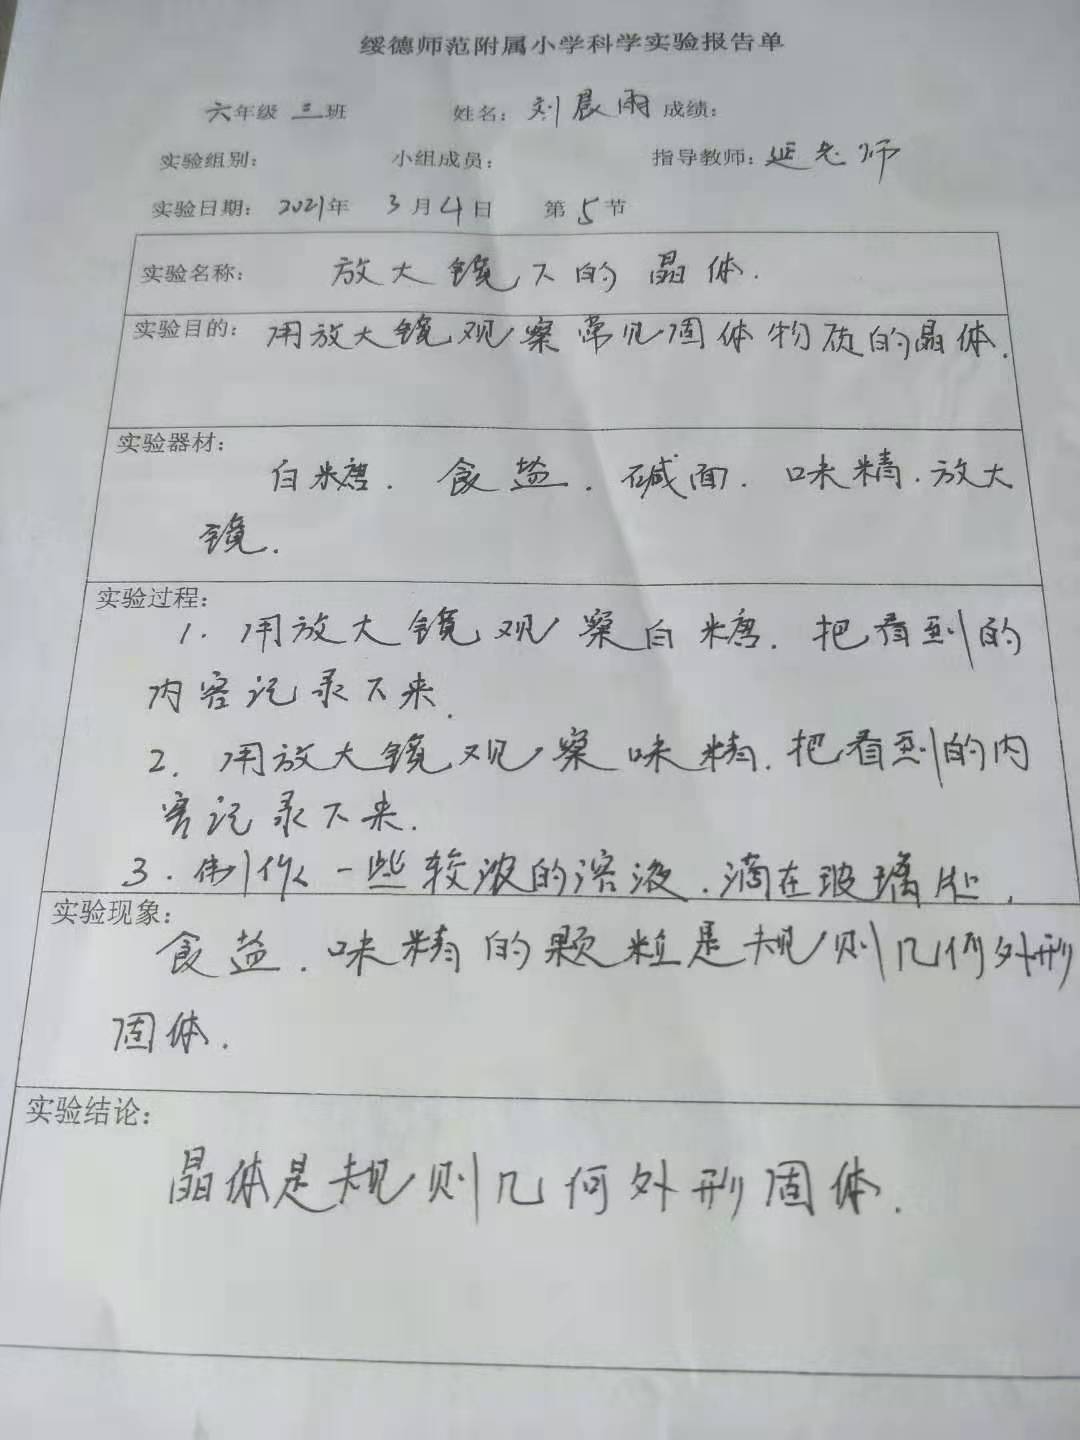 绥德师范附属小学科学实验报告单
六年级 三班 姓名: 刘晨雨 成绩:
实验组别: 小组成员: 指导教师: 延老师
实验日期: 2021年 3月4日 第5节
实验名称: 放大镜下的晶体.
实验目的: 用放大镜观察常见固体物质的晶体.
实验器材:
白糖. 食盐. 碱面. 味精. 放大
镜.
实验过程:
1. 用放大镜观察白糖. 把看到的
内容记录下来.
2. 用放大镜观察味精. 把看到的内
容记录下来.
3. 制作一些较浓的溶液. 滴在玻璃片上.
实验现象:
食盐. 味精的颗粒是规则几何外形
固体.
实验结论:
晶体是规则几何外形固体.